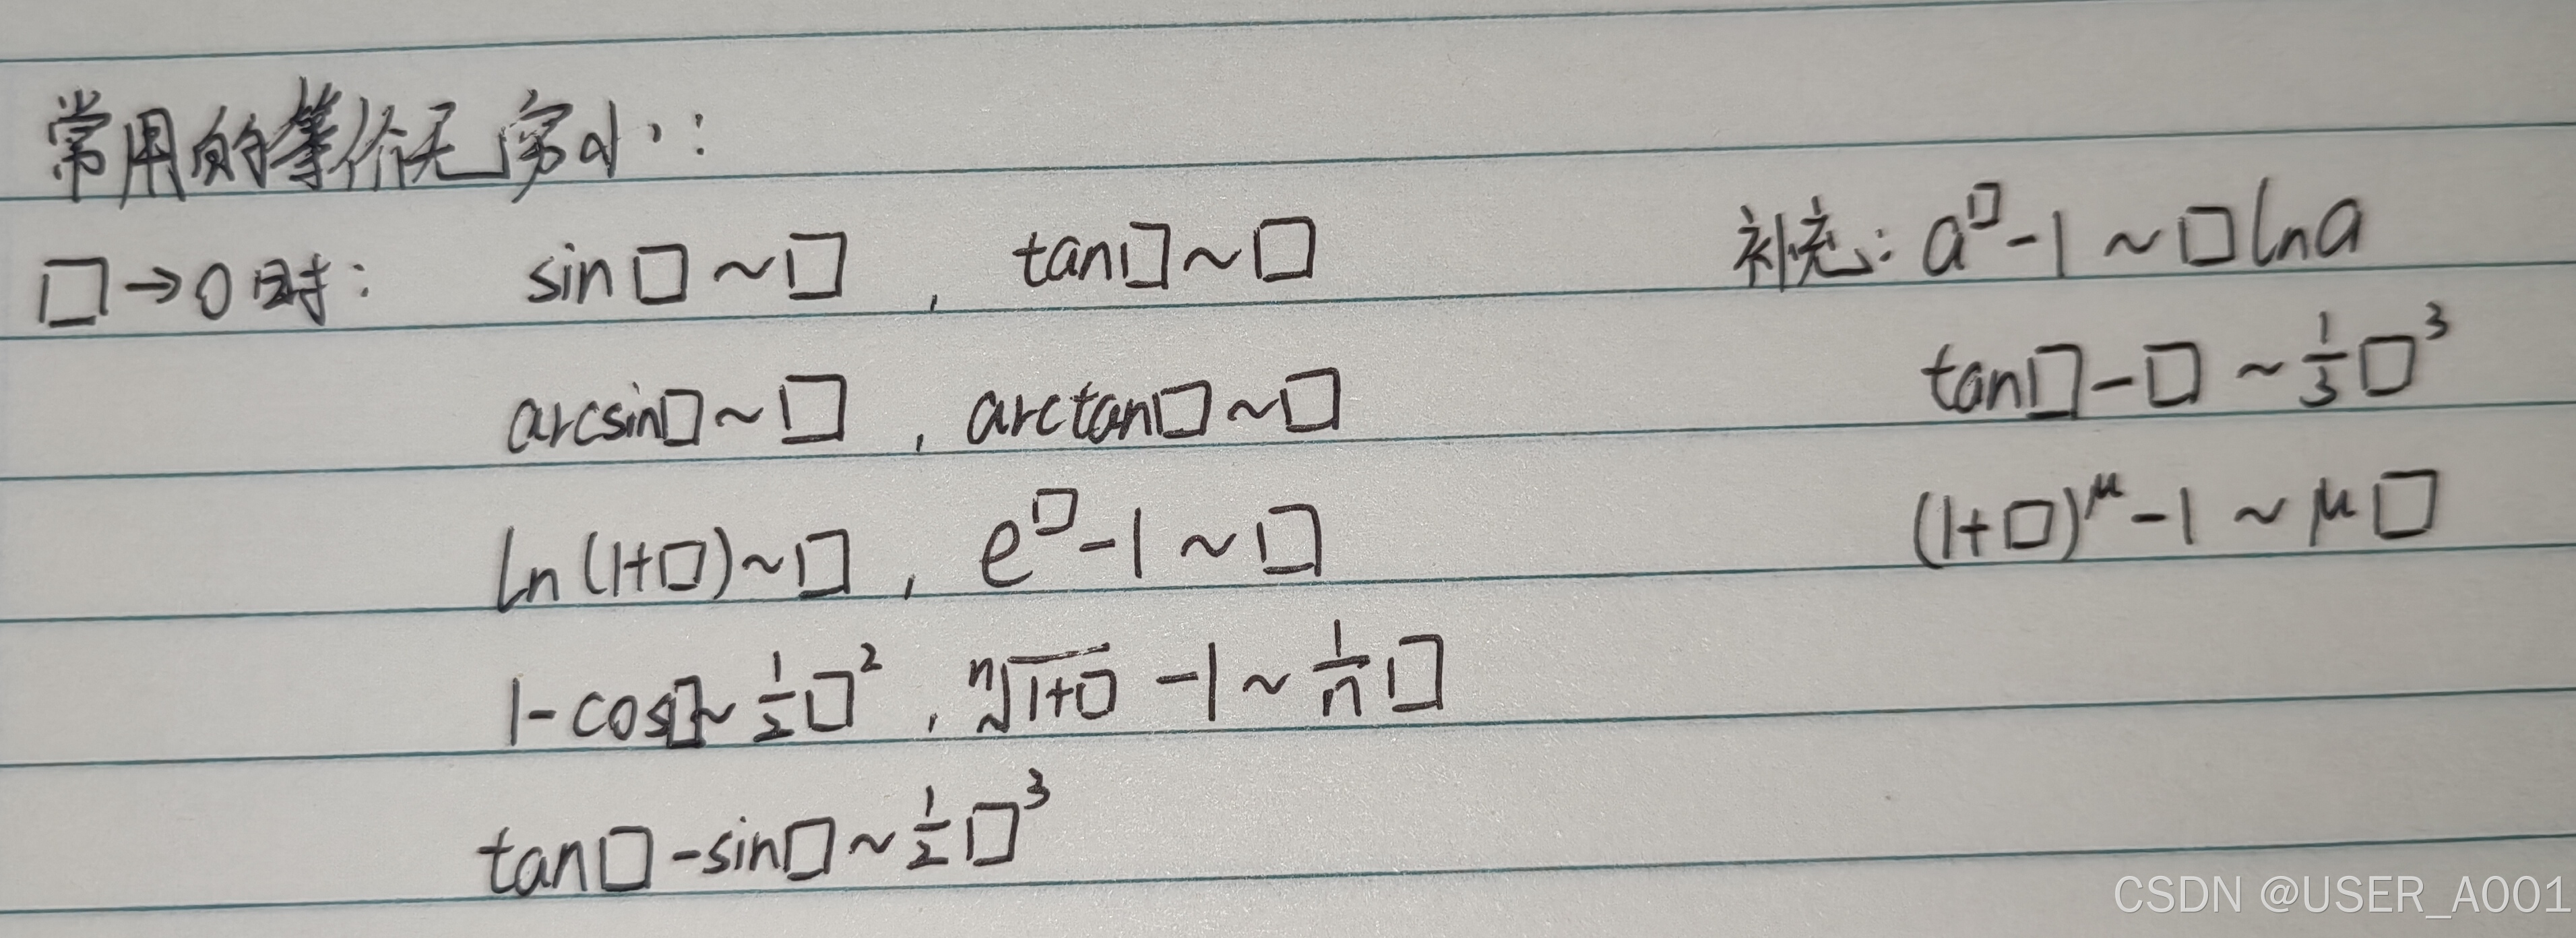 常用的等价无穷小:
□→0时: sin□~□, tan□~□
arcsin□~□, arctan□~□
ln(1+□)~□, e^□-1~□
1-cos□~1/2□², ⁿ√(1+□) -1~1/n□
tan□-sin□~1/2□³
补充: a^□-1~□lna
tan□-□~1/3□³
(1+□)^μ-1~μ□
CSDN @USER_A001